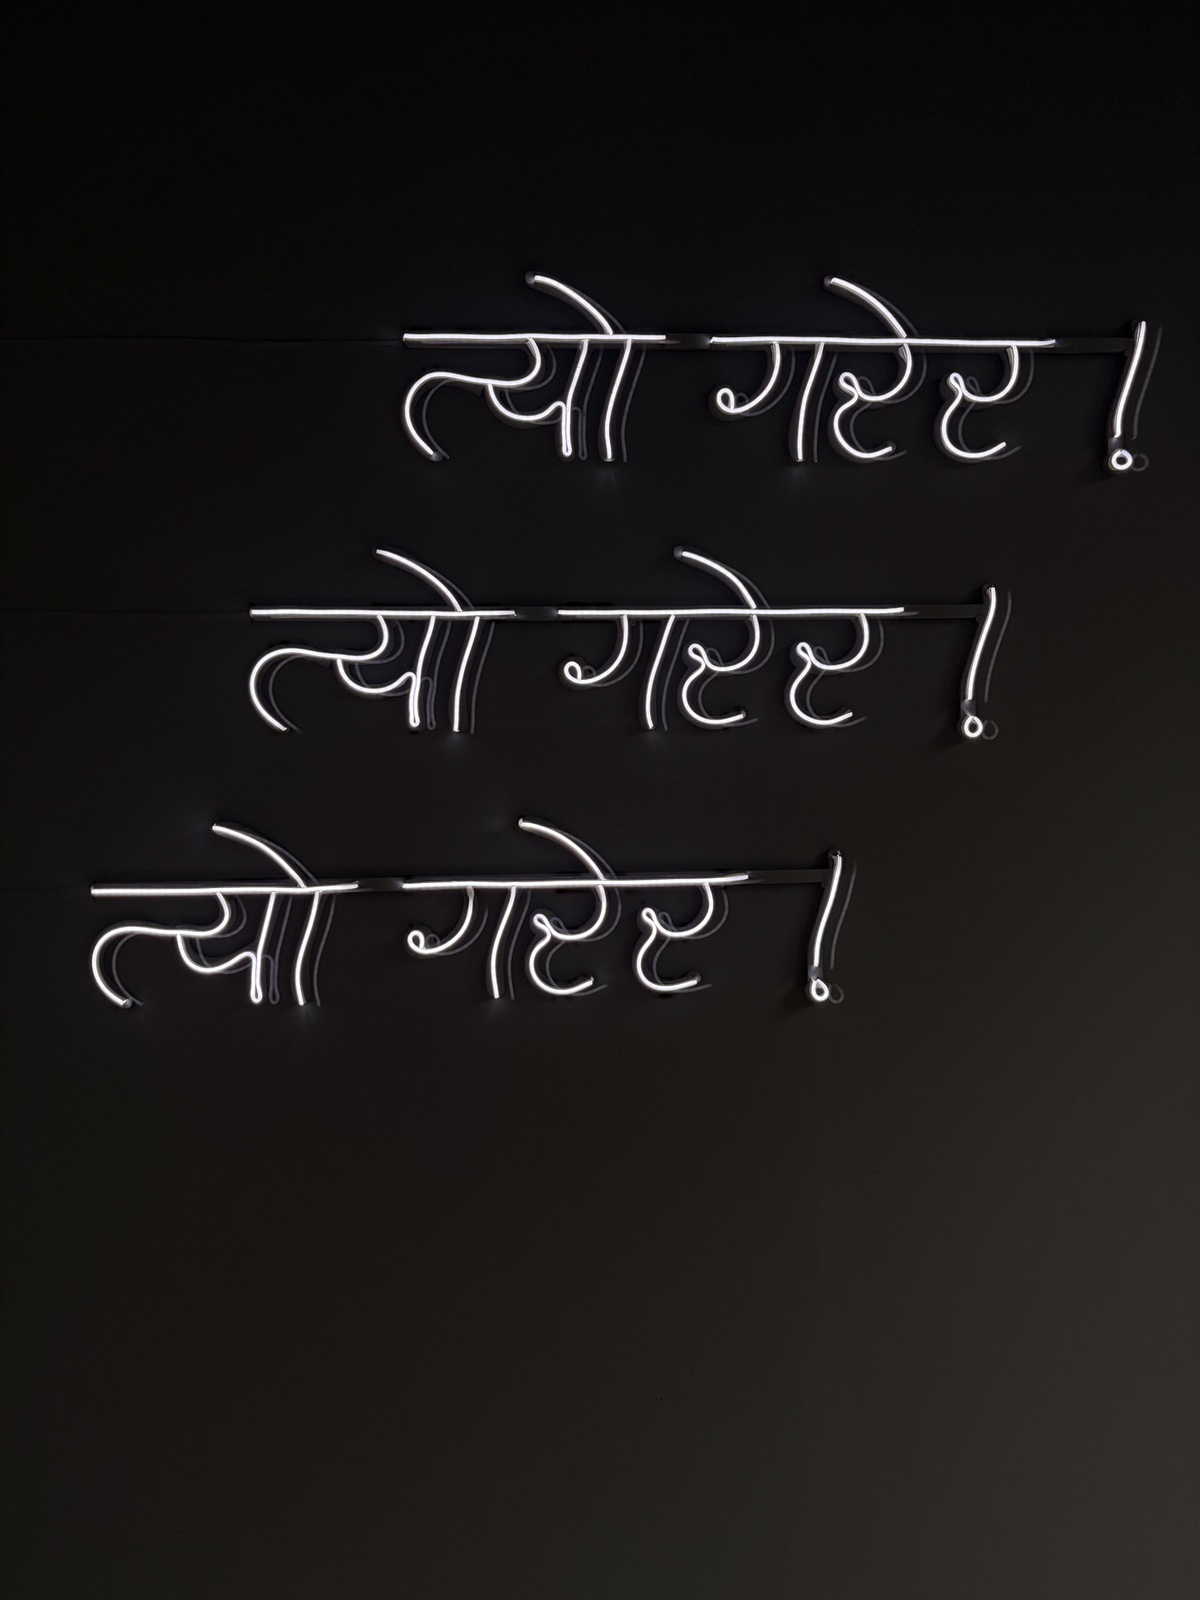 त्यो गरेर!
त्यो गरेर!
त्यो गरेर!